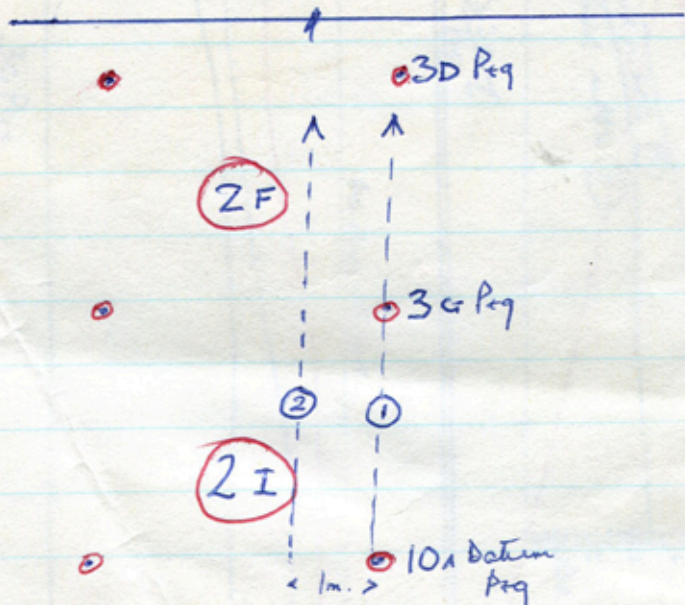 3D Peg
2F
3G Peg
2 1
2 I
10A Datum
Peg
1m.